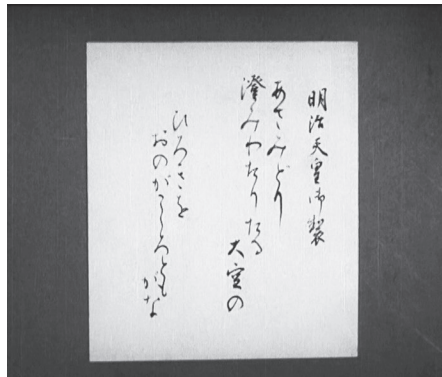 明治天皇御製
あさみどり
澄みわたりたる
大空の
ひろきを
おのがこゝろとも
がな